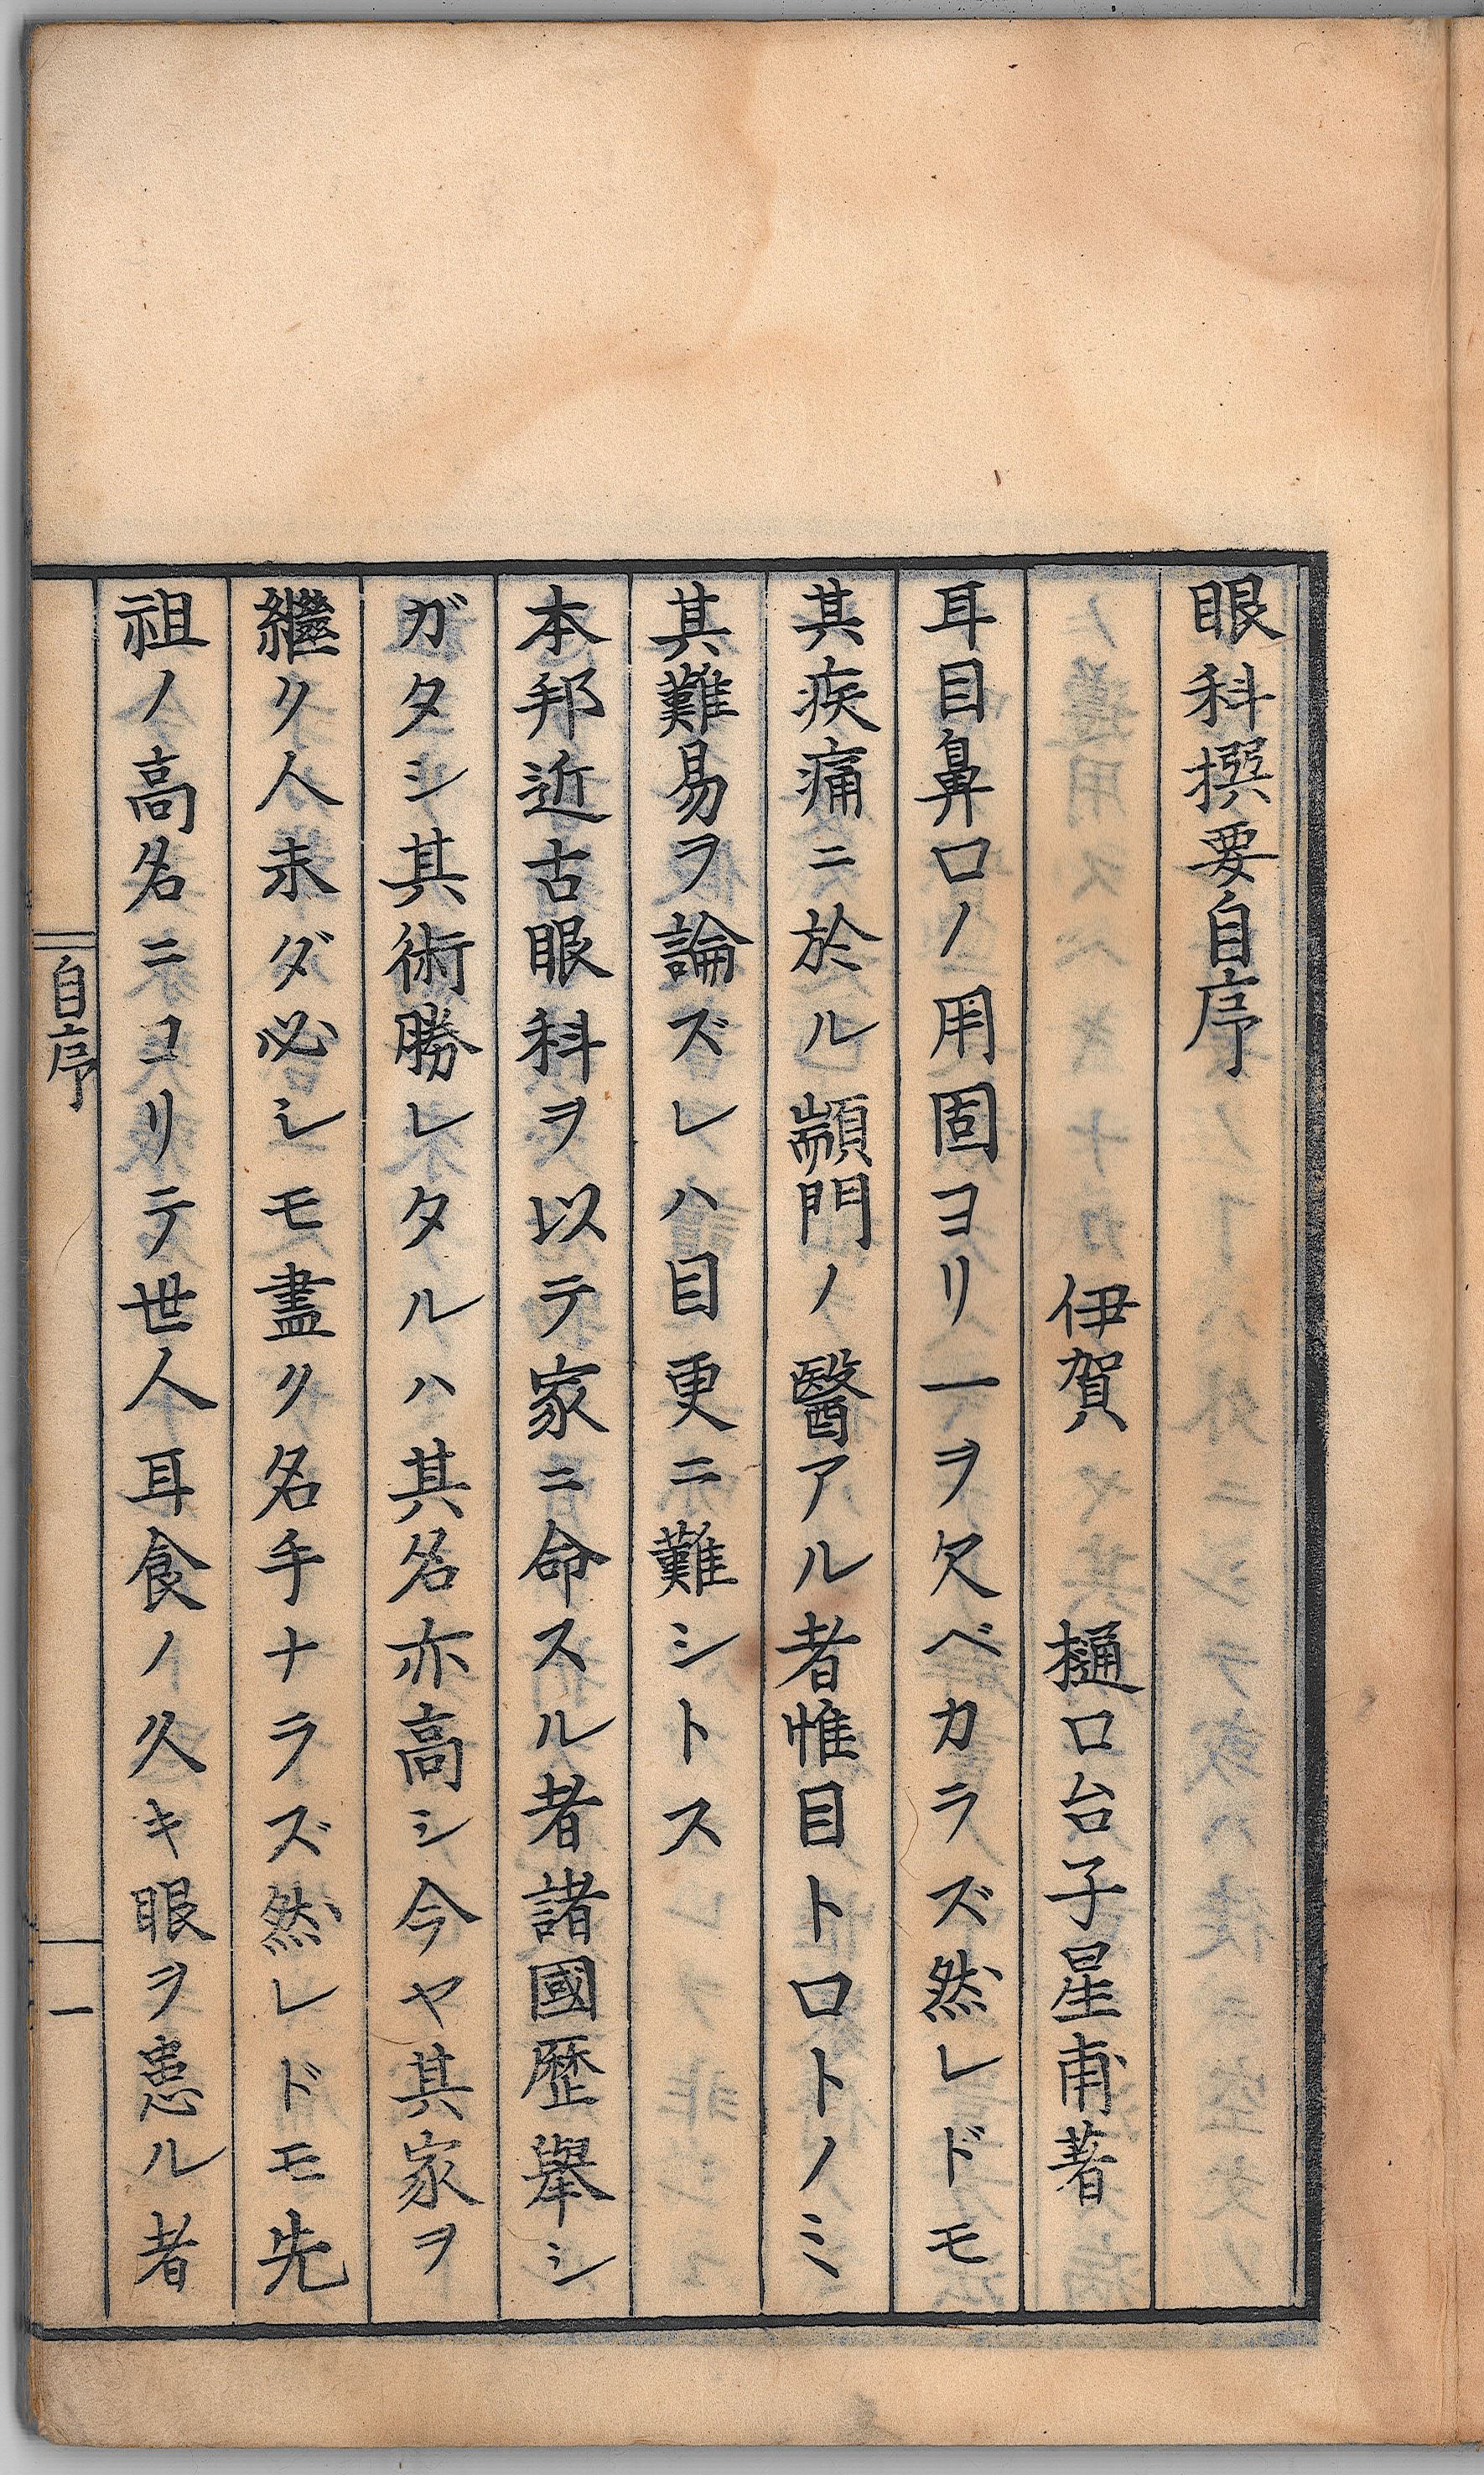 眼科撰要自序
伊賀　樋口台子星甫著
耳目鼻口ノ用固ヨリ一ヲ欠ベカラズ然レドモ
其疾痛ニ於ル顓門ノ醫アル者惟目ト口トノミ
其難易ヲ論ズレハ目更ニ難シトス
本邦近古眼科ヲ以テ家ニ命スル者諸國歴舉シ
ガタシ其術勝レタルハ其名亦高シ今ヤ其家ヲ
繼ク人未ダ必シモ盡ク名手ナラズ然レドモ先
祖ノ高名ニコリテ世人耳食ノ久キ眼ヲ患ル者
自序
一